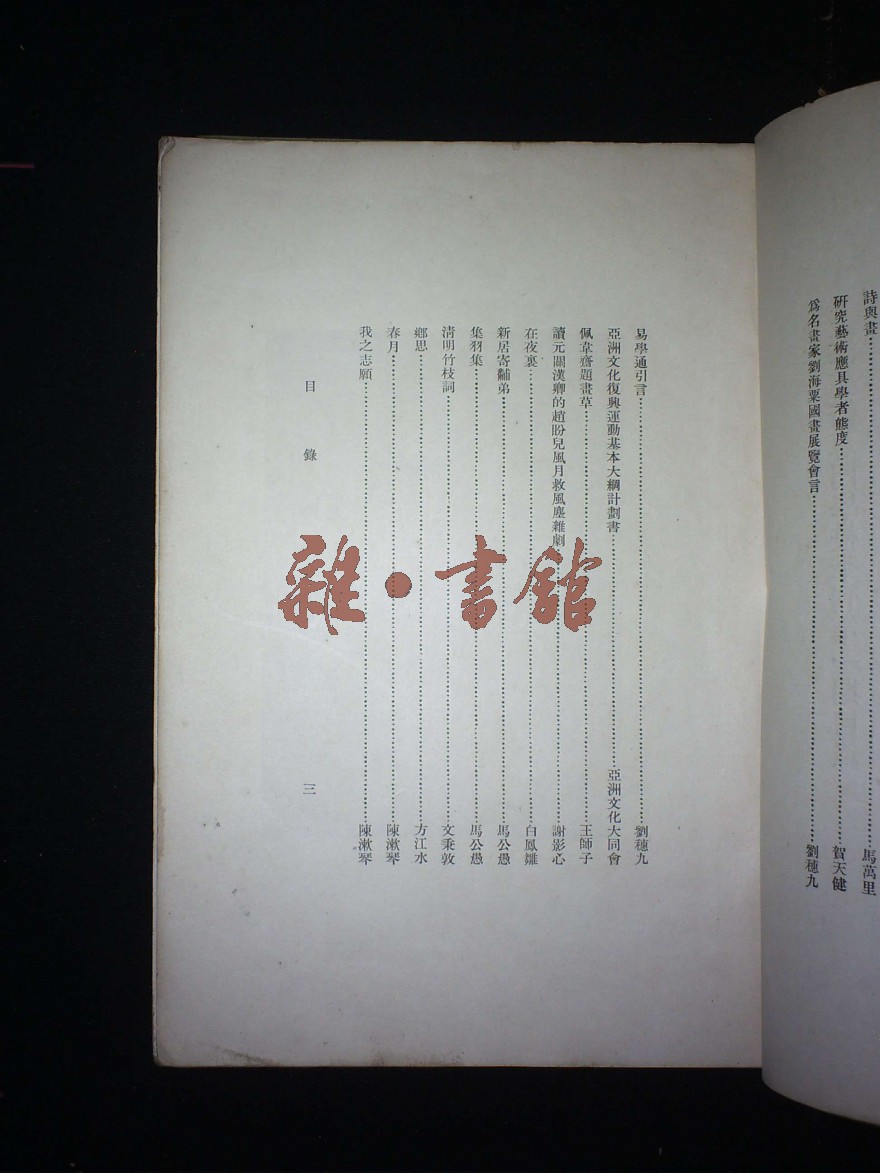 詩與畫……馬萬里
研究藝術應具學者態度……賀天健
爲名畫家劉海粟國畫展覽會言……劉穗九
易學通引言……劉穗九
亞洲文化復興運動基本大綱計劃書……亞洲文化大同會
佩韋齋題畫草……王師子
讀元關漢卿的趙盼兒風月救風塵雜劇……謝影心
在夜裏……白鳳雛
新居寄黼弟……馬公愚
集羽集……馬公愚
清明竹枝詞……文秉敦
鄉思……方江水
春月……陳漱琴
我之志願……陳漱琴
目錄
三
雜·書館